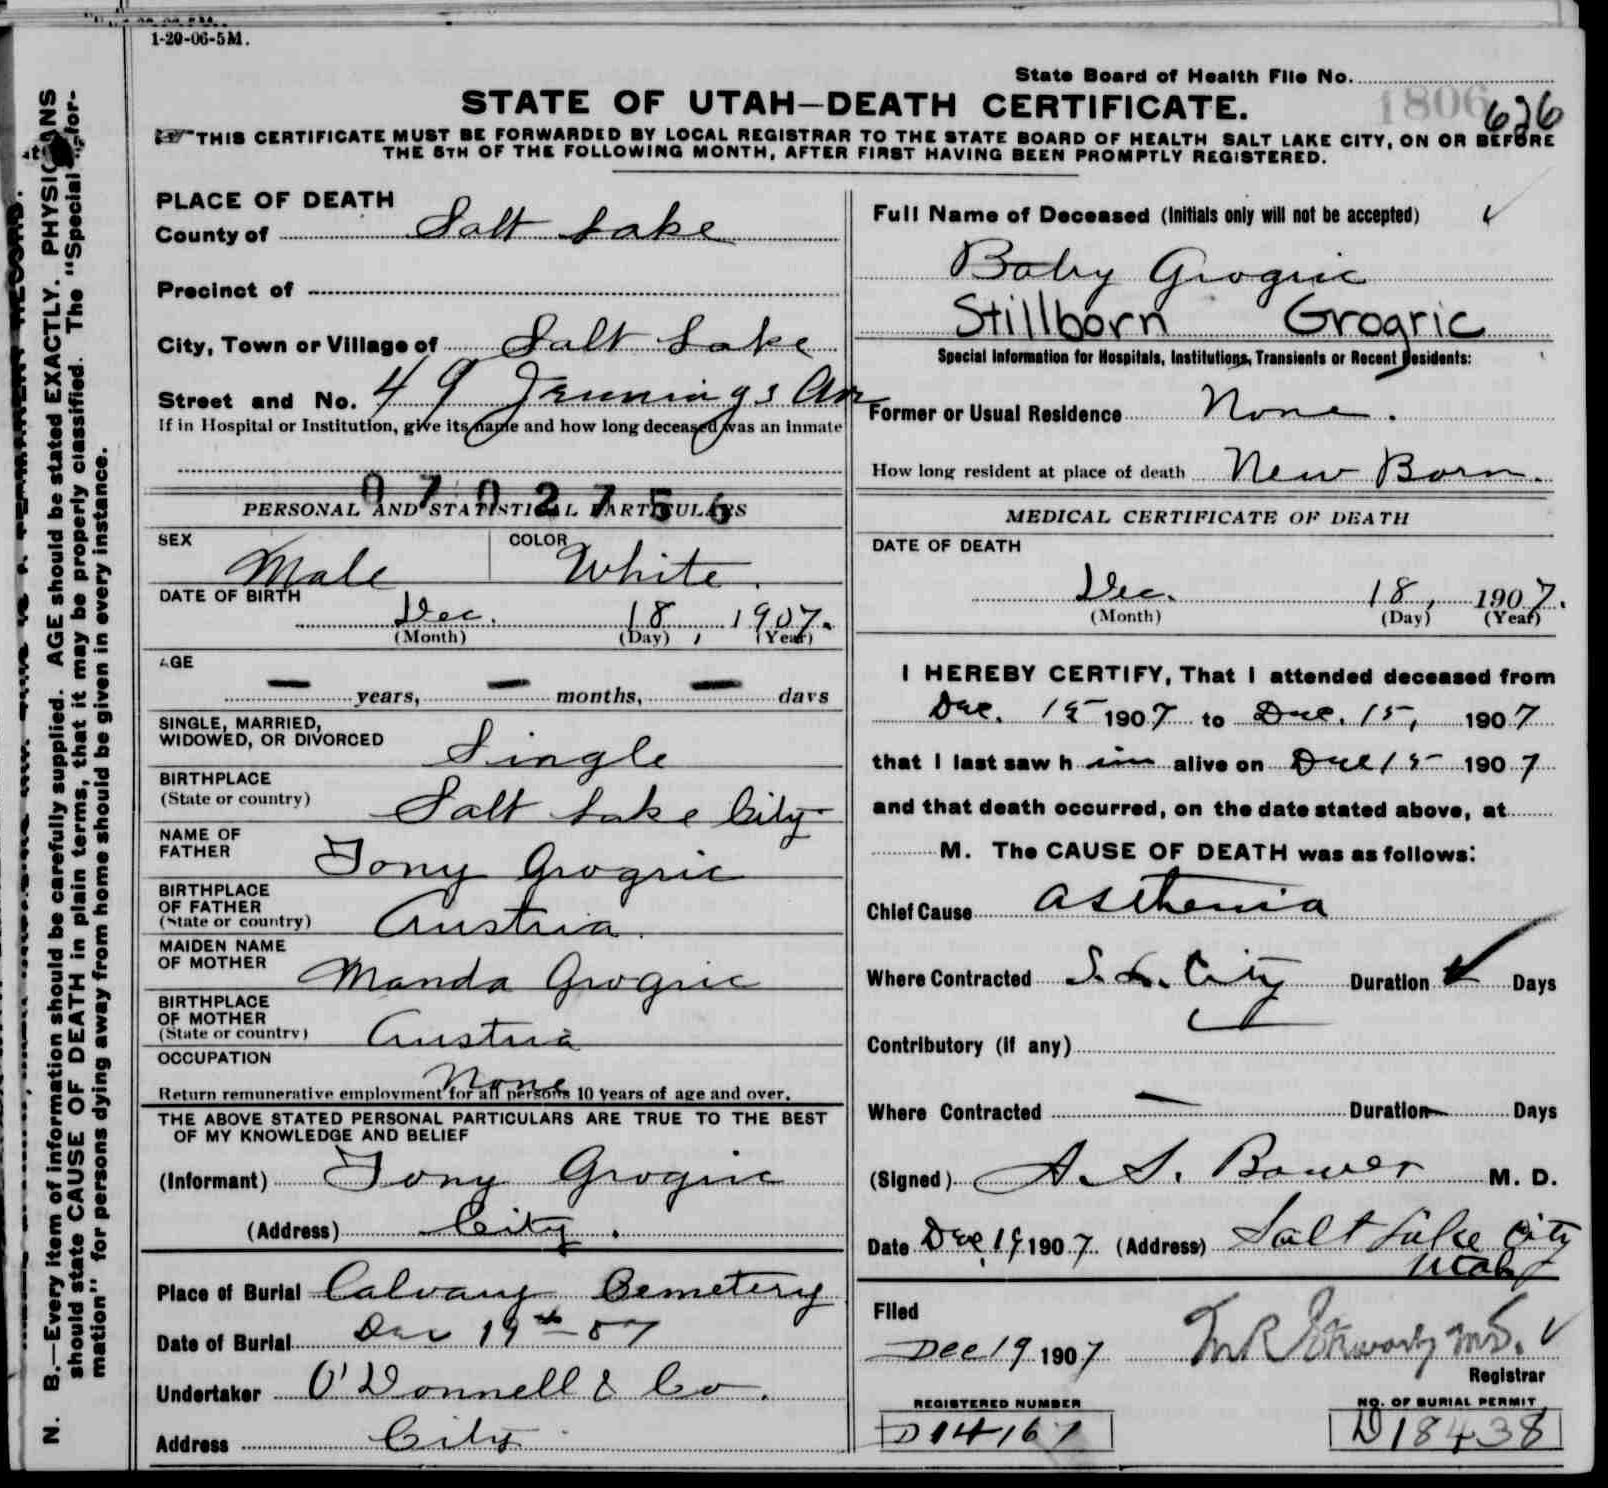 1-20-06-5M.
State Board of Health File No.
1806 626
STATE OF UTAH—DEATH CERTIFICATE.
THIS CERTIFICATE MUST BE FORWARDED BY LOCAL REGISTRAR TO THE STATE BOARD OF HEALTH SALT LAKE CITY, ON OR BEFORE
THE 5TH OF THE FOLLOWING MONTH, AFTER FIRST HAVING BEEN PROMPTLY REGISTERED.
PLACE OF DEATH
County of Salt Lake
Precinct of
City, Town or Village of Salt Lake
Street and No. 49 Jennings Ave
If in Hospital or Institution, give its name and how long deceased was an inmate
0702756
PERSONAL AND STATISTICAL PARTICULARS
SEX Male COLOR White.
DATE OF BIRTH
Dec. 18, 1907.
(Month) (Day) (Year)
AGE
— years, — months, — days
SINGLE, MARRIED,
WIDOWED, OR DIVORCED Single
BIRTHPLACE
(State or country) Salt Lake City
NAME OF
FATHER Tony Grogric
BIRTHPLACE
OF FATHER
(State or country) Austria.
MAIDEN NAME
OF MOTHER Manda Grogric
BIRTHPLACE
OF MOTHER
(State or country) Austria
OCCUPATION
None
Return remunerative employment for all persons 10 years of age and over.
THE ABOVE STATED PERSONAL PARTICULARS ARE TRUE TO THE BEST
OF MY KNOWLEDGE AND BELIEF
(Informant) Tony Grogric
(Address) City.
Place of Burial Calvary Cemetery
Date of Burial Dec 19th - 07
Undertaker O'Donnell & Co.
Address City
Full Name of Deceased (Initials only will not be accepted)
Baby Grogric
Stillborn Grogric
Special Information for Hospitals, Institutions, Transients or Recent Residents:
Former or Usual Residence None.
How long resident at place of death New Born.
MEDICAL CERTIFICATE OF DEATH
DATE OF DEATH
Dec. 18, 1907.
(Month) (Day) (Year)
I HEREBY CERTIFY, That I attended deceased from
Dec. 1907 to Dec. 1907
that I last saw him alive on Dec 1907
and that death occurred, on the date stated above, at
M. The CAUSE OF DEATH was as follows:
Chief Cause Asthenia
Where Contracted S. L. City Duration Days
Contributory (if any)
Where Contracted — Duration — Days
(Signed) A. S. Bower M. D.
Date Dec. 19 1907 (Address) Salt Lake City
Utah
Filed
Dec 19 1907
Registrar
REGISTERED NUMBER
D14167
NO. OF BURIAL PERMIT
D18438
N. B.—Every item of information should be carefully supplied. AGE should be stated EXACTLY. PHYSICIANS
should state CAUSE OF DEATH in plain terms, that it may be properly classified. The "Special Infor-
mation" for persons dying away from home should be given in every instance.